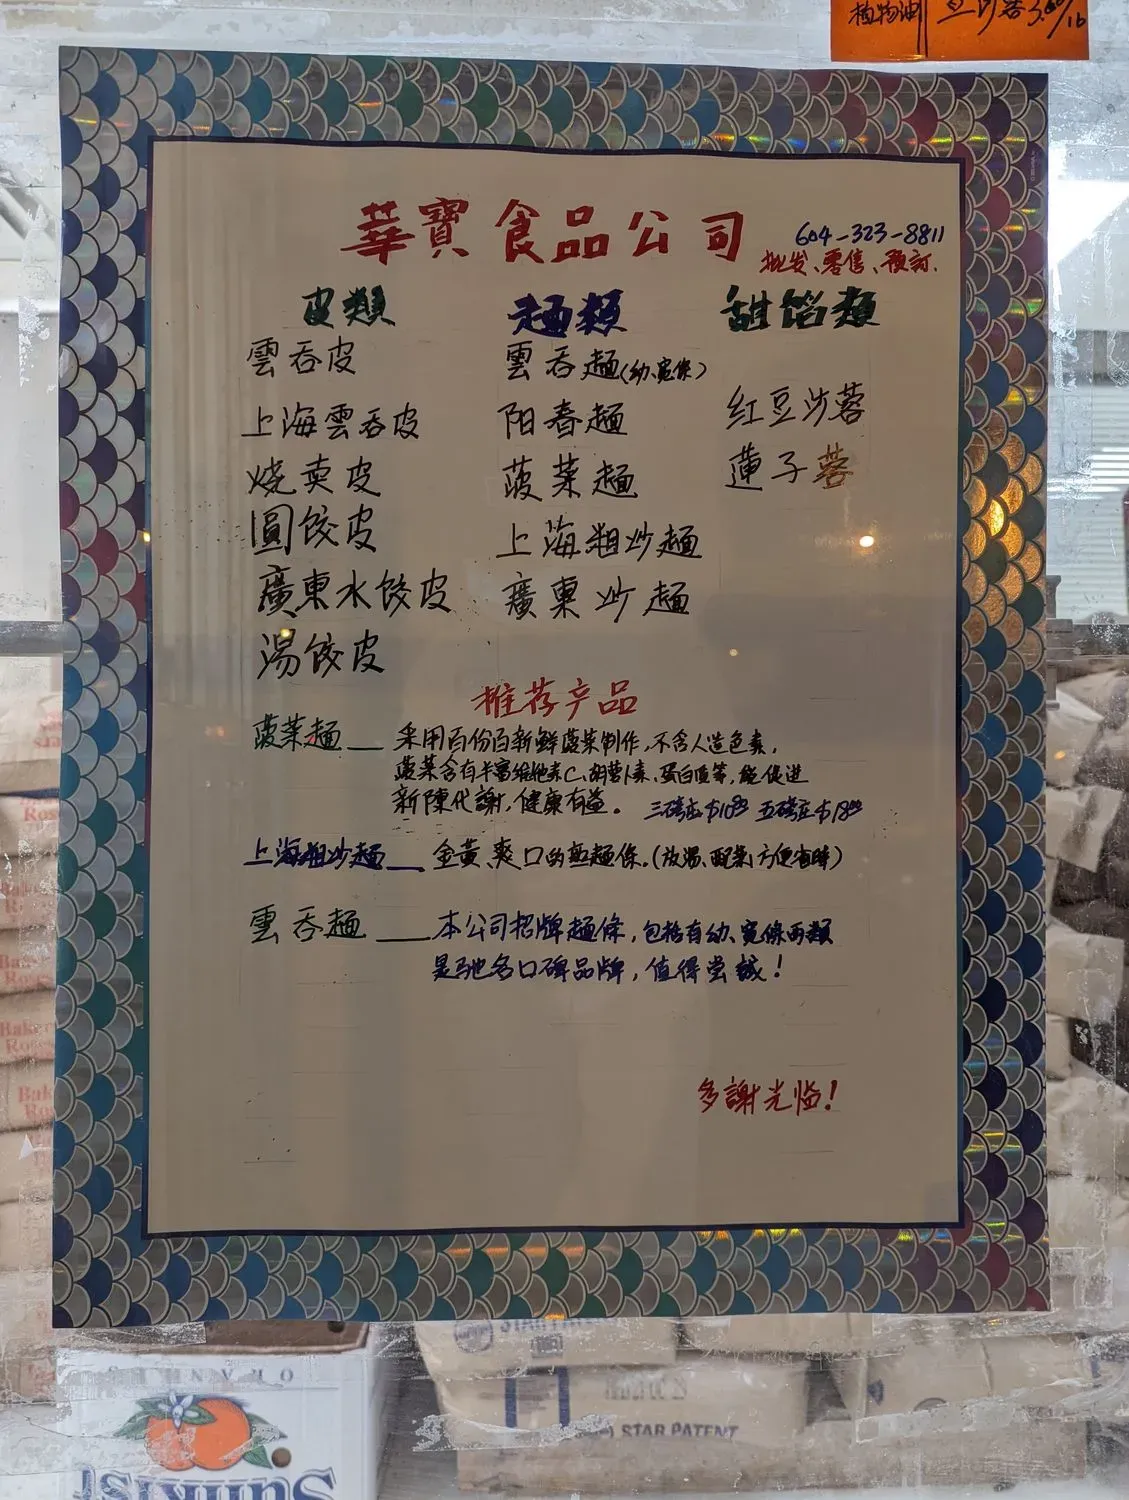 植物油 豆沙蓉3.00/lb
華寶食品公司
604-323-8811
批发、零售、预訂.
皮類
雲吞皮
上海雲吞皮
烧卖皮
圓餃皮
廣東水餃皮
湯餃皮
麺類
雲吞麺(幼、宽條)
阳春麺
菠菜麺
上海粗炒麺
廣東炒麺
甜馅類
红豆沙蓉
蓮子蓉
推荐产品
菠菜麺 — 采用百份百新鮮菠菜制作,不含人造色素,
菠菜含有丰富维他素C、胡萝卜素、蛋白质等,能促进
新陳代謝,健康有益。 三磅庄$10 五磅庄$18
上海粗炒麺 — 金黃,爽口的麺條。(放湯、配菜,方便省時)
雲吞麺 — 本公司招牌麺條,包括有幼、宽條两類
是驰名口碑品牌,值得尝試!
多謝光临!
Bakers
Roses
ORANGES
Sunkist
STAR PATENT
STAR PATENT